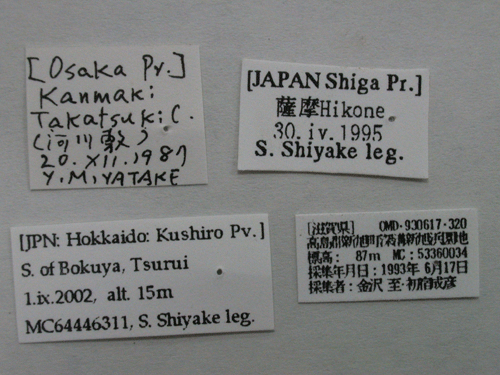 [Osaka Pr.]
Kanmaki
Takatsuki C.
(河川敷)
20. XII. 1987
Y. MIYATAKE
[JAPAN Shiga Pr.]
薩摩Hikone
30. iv. 1995
S. Shiyake leg.
[JPN: Hokkaido: Kushiro Pv.]
S. of Bokuya, Tsurui
1.ix.2002, alt. 15m
MC64446311, S. Shiyake leg.
[滋賀県] OMD-930617-320
高島郡新旭町
標高: 87m MC: 53360034
採集年月日: 1993年 6月17日
採集者: 金沢 至・初宿成彦